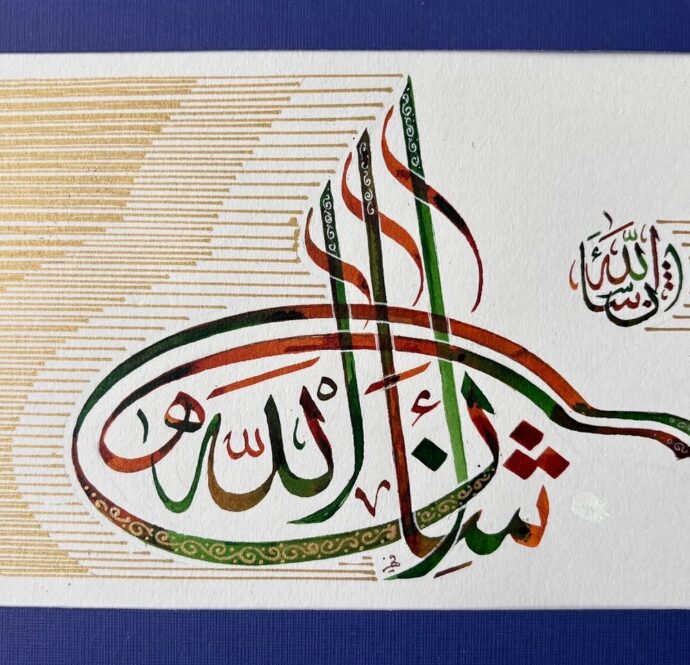 إن شاء الله
إن شاء الله